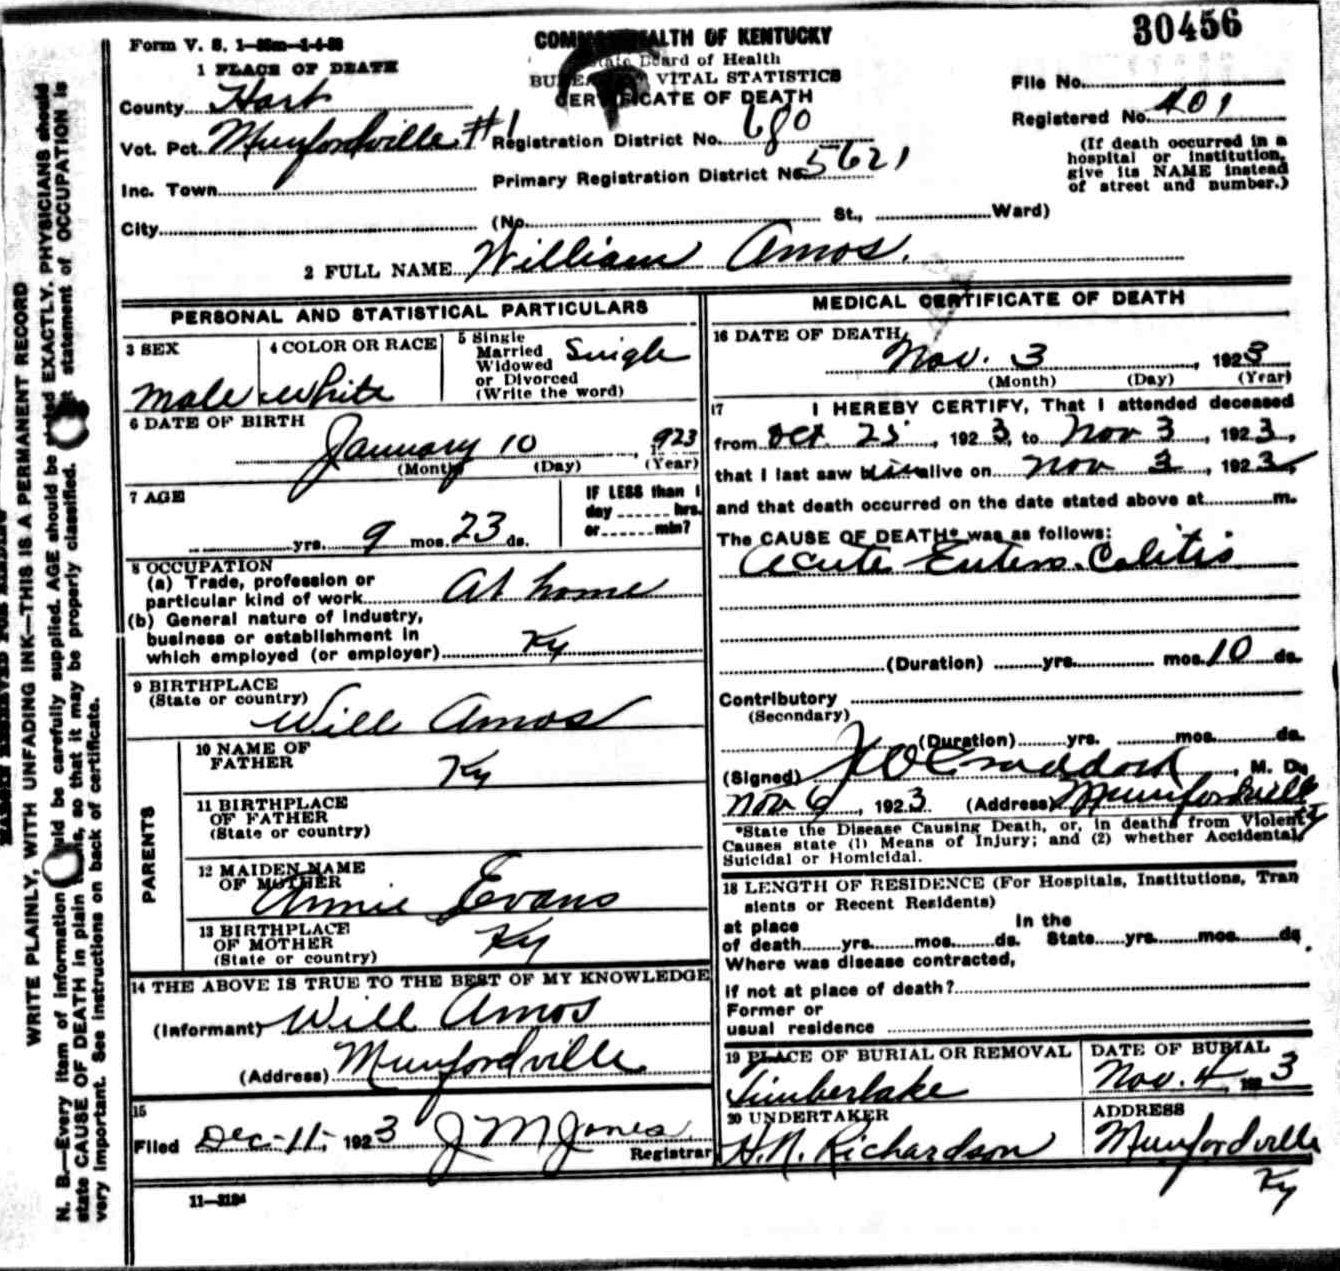 30456
Form V. S. 1-35m-1-4-23
COMMONWEALTH OF KENTUCKY
State Board of Health
BUREAU OF VITAL STATISTICS
CERTIFICATE OF DEATH
1 PLACE OF DEATH
County Hart
Vot. Pct. Munfordville #1
Inc. Town
City
Registration District No. 680
Primary Registration District No. 5621
(No. St., Ward)
File No.
Registered No. 401
(If death occurred in a
hospital or institution,
give its NAME instead
of street and number.)
2 FULL NAME William Amos.
PERSONAL AND STATISTICAL PARTICULARS
3 SEX
male
4 COLOR OR RACE
White
5 Single
Married
Widowed
or Divorced
(Write the word)
Single
6 DATE OF BIRTH
January 10, 1923
(Month) (Day) (Year)
7 AGE
yrs. 9 mos. 23 ds.
IF LESS than 1
day hrs.
or min?
8 OCCUPATION
(a) Trade, profession or
particular kind of work At home
(b) General nature of Industry,
business or establishment in
which employed (or employer) Ky
9 BIRTHPLACE
(State or country)
Will Amos
PARENTS
10 NAME OF
FATHER
Ky
11 BIRTHPLACE
OF FATHER
(State or country)
12 MAIDEN NAME
OF MOTHER
Annie Evans
13 BIRTHPLACE
OF MOTHER
(State or country)
Ky
14 THE ABOVE IS TRUE TO THE BEST OF MY KNOWLEDGE
(Informant) Will Amos
(Address) Munfordville
15
Filed Dec-11-, 1923 J M Jones
Registrar
11-3184
MEDICAL CERTIFICATE OF DEATH
16 DATE OF DEATH
Nov. 3, 1923
(Month) (Day) (Year)
17 I HEREBY CERTIFY, That I attended deceased
from Oct 25, 1923, to Nov 3, 1923,
that I last saw him alive on Nov 3, 1923,
and that death occurred on the date stated above at m.
The CAUSE OF DEATH* was as follows:
Acute Entero-Colitis
(Duration) yrs. mos. 10 ds.
Contributory
(Secondary)
(Duration) yrs. mos. ds.
(Signed) Craddock, M. D.
Nov 6, 1923 (Address) Munfordville
Ky
*State the Disease Causing Death, or, in deaths from Violent
Causes state (1) Means of Injury; and (2) whether Accidental,
Suicidal or Homicidal.
18 LENGTH OF RESIDENCE (For Hospitals, Institutions, Tran
sients or Recent Residents)
at place In the
of death yrs. mos. ds. State yrs. mos. ds.
Where was disease contracted,
if not at place of death?
Former or
usual residence
19 PLACE OF BURIAL OR REMOVAL
Timberlake
DATE OF BURIAL
Nov. 4 1923
20 UNDERTAKER
H.N. Richardson
ADDRESS
Munfordville
Ky
MARGIN RESERVED FOR BINDING
WRITE PLAINLY, WITH UNFADING INK—THIS IS A PERMANENT RECORD
N. B.—Every item of information should be carefully supplied. AGE should be stated EXACTLY. PHYSICIANS should
state CAUSE OF DEATH in plain terms, so that it may be properly classified. Exact statement of OCCUPATION is
very important. See instructions on back of certificate.